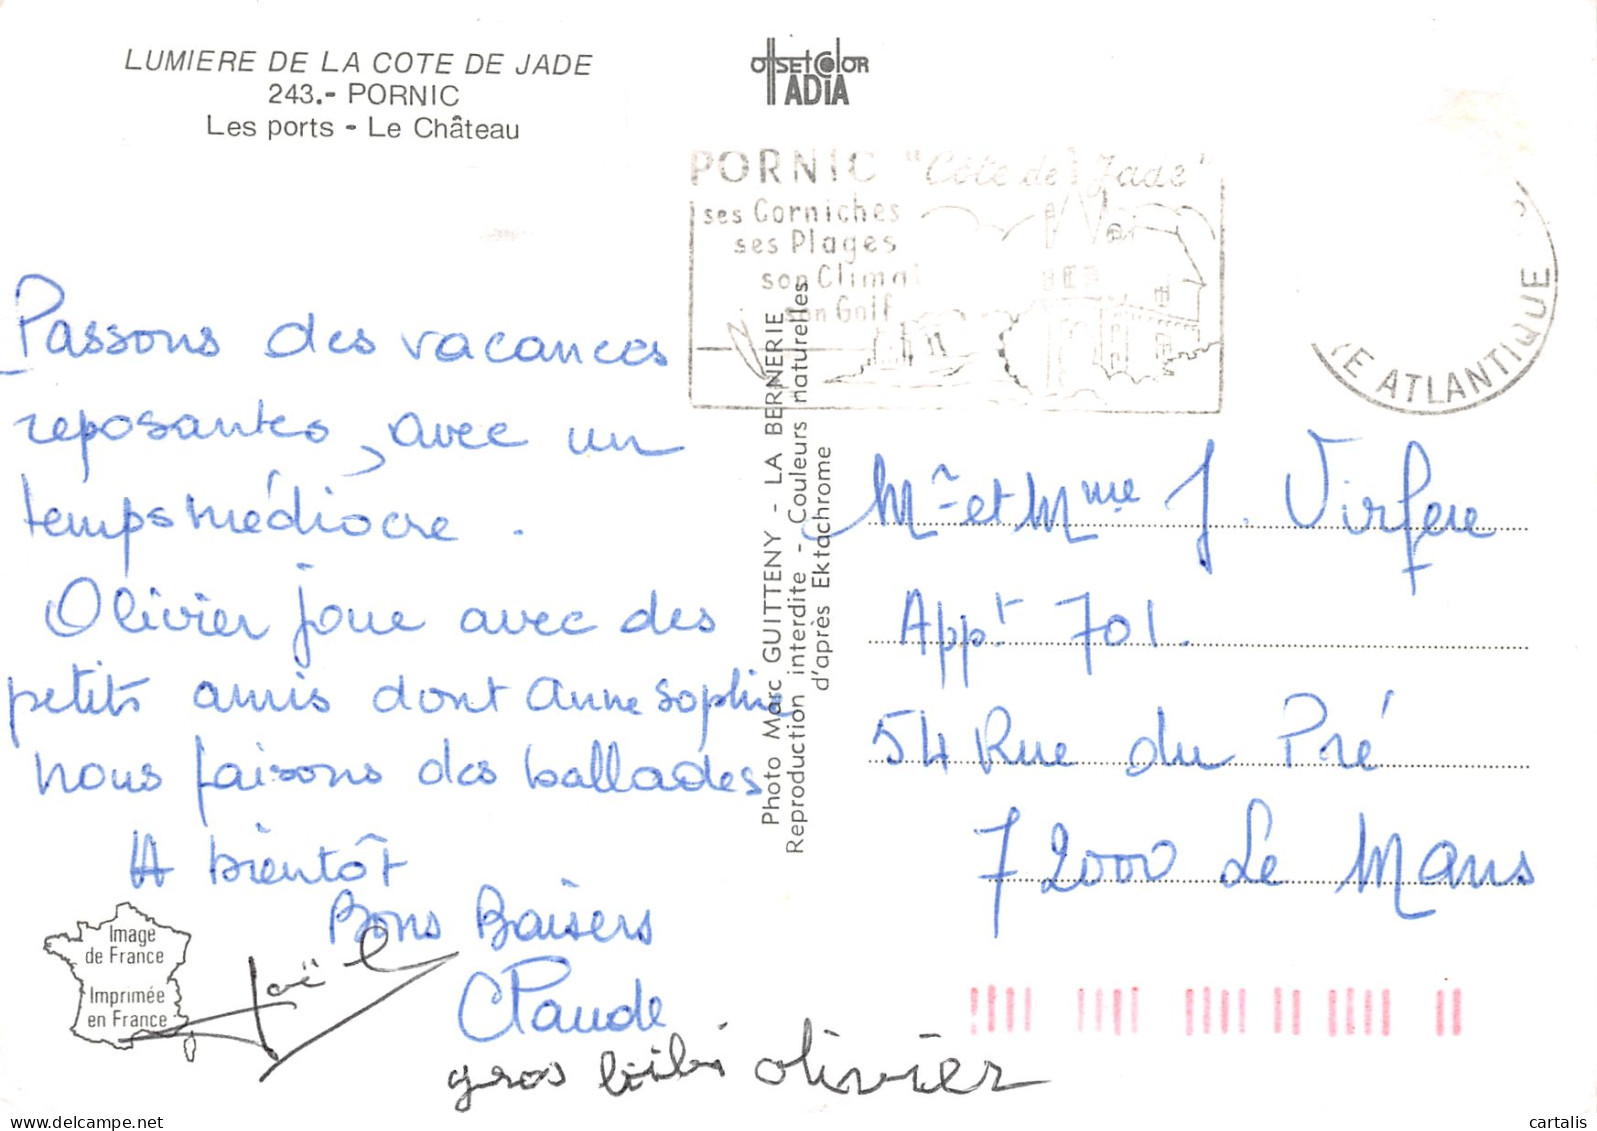 LUMIERE DE LA COTE DE JADE
243.- PORNIC
Les ports - Le Château
OffsetColor
ADIA
PORNIC "Côte de Jade"
ses Corniches
ses Plages
son Climat
son Golf
E ATLANTIQUE
Passons des vacances
reposantes, avec un
temps médiocre.
Olivier joue avec des
petits amis dont Anne Sophie
nous faisons des ballades
A bientôt
Bons Baisers
Claude
Joël
gros bibi olivier
Image
de France
Imprimée
en France
Photo Marc GUITTENY - LA BERNERIE
Reproduction interdite - Couleurs naturelles
d'après Ektachrome
Mr et Mme J. Virfeu
Appt 701.
54 Rue du Pré
72000 Le Mans
cartalis